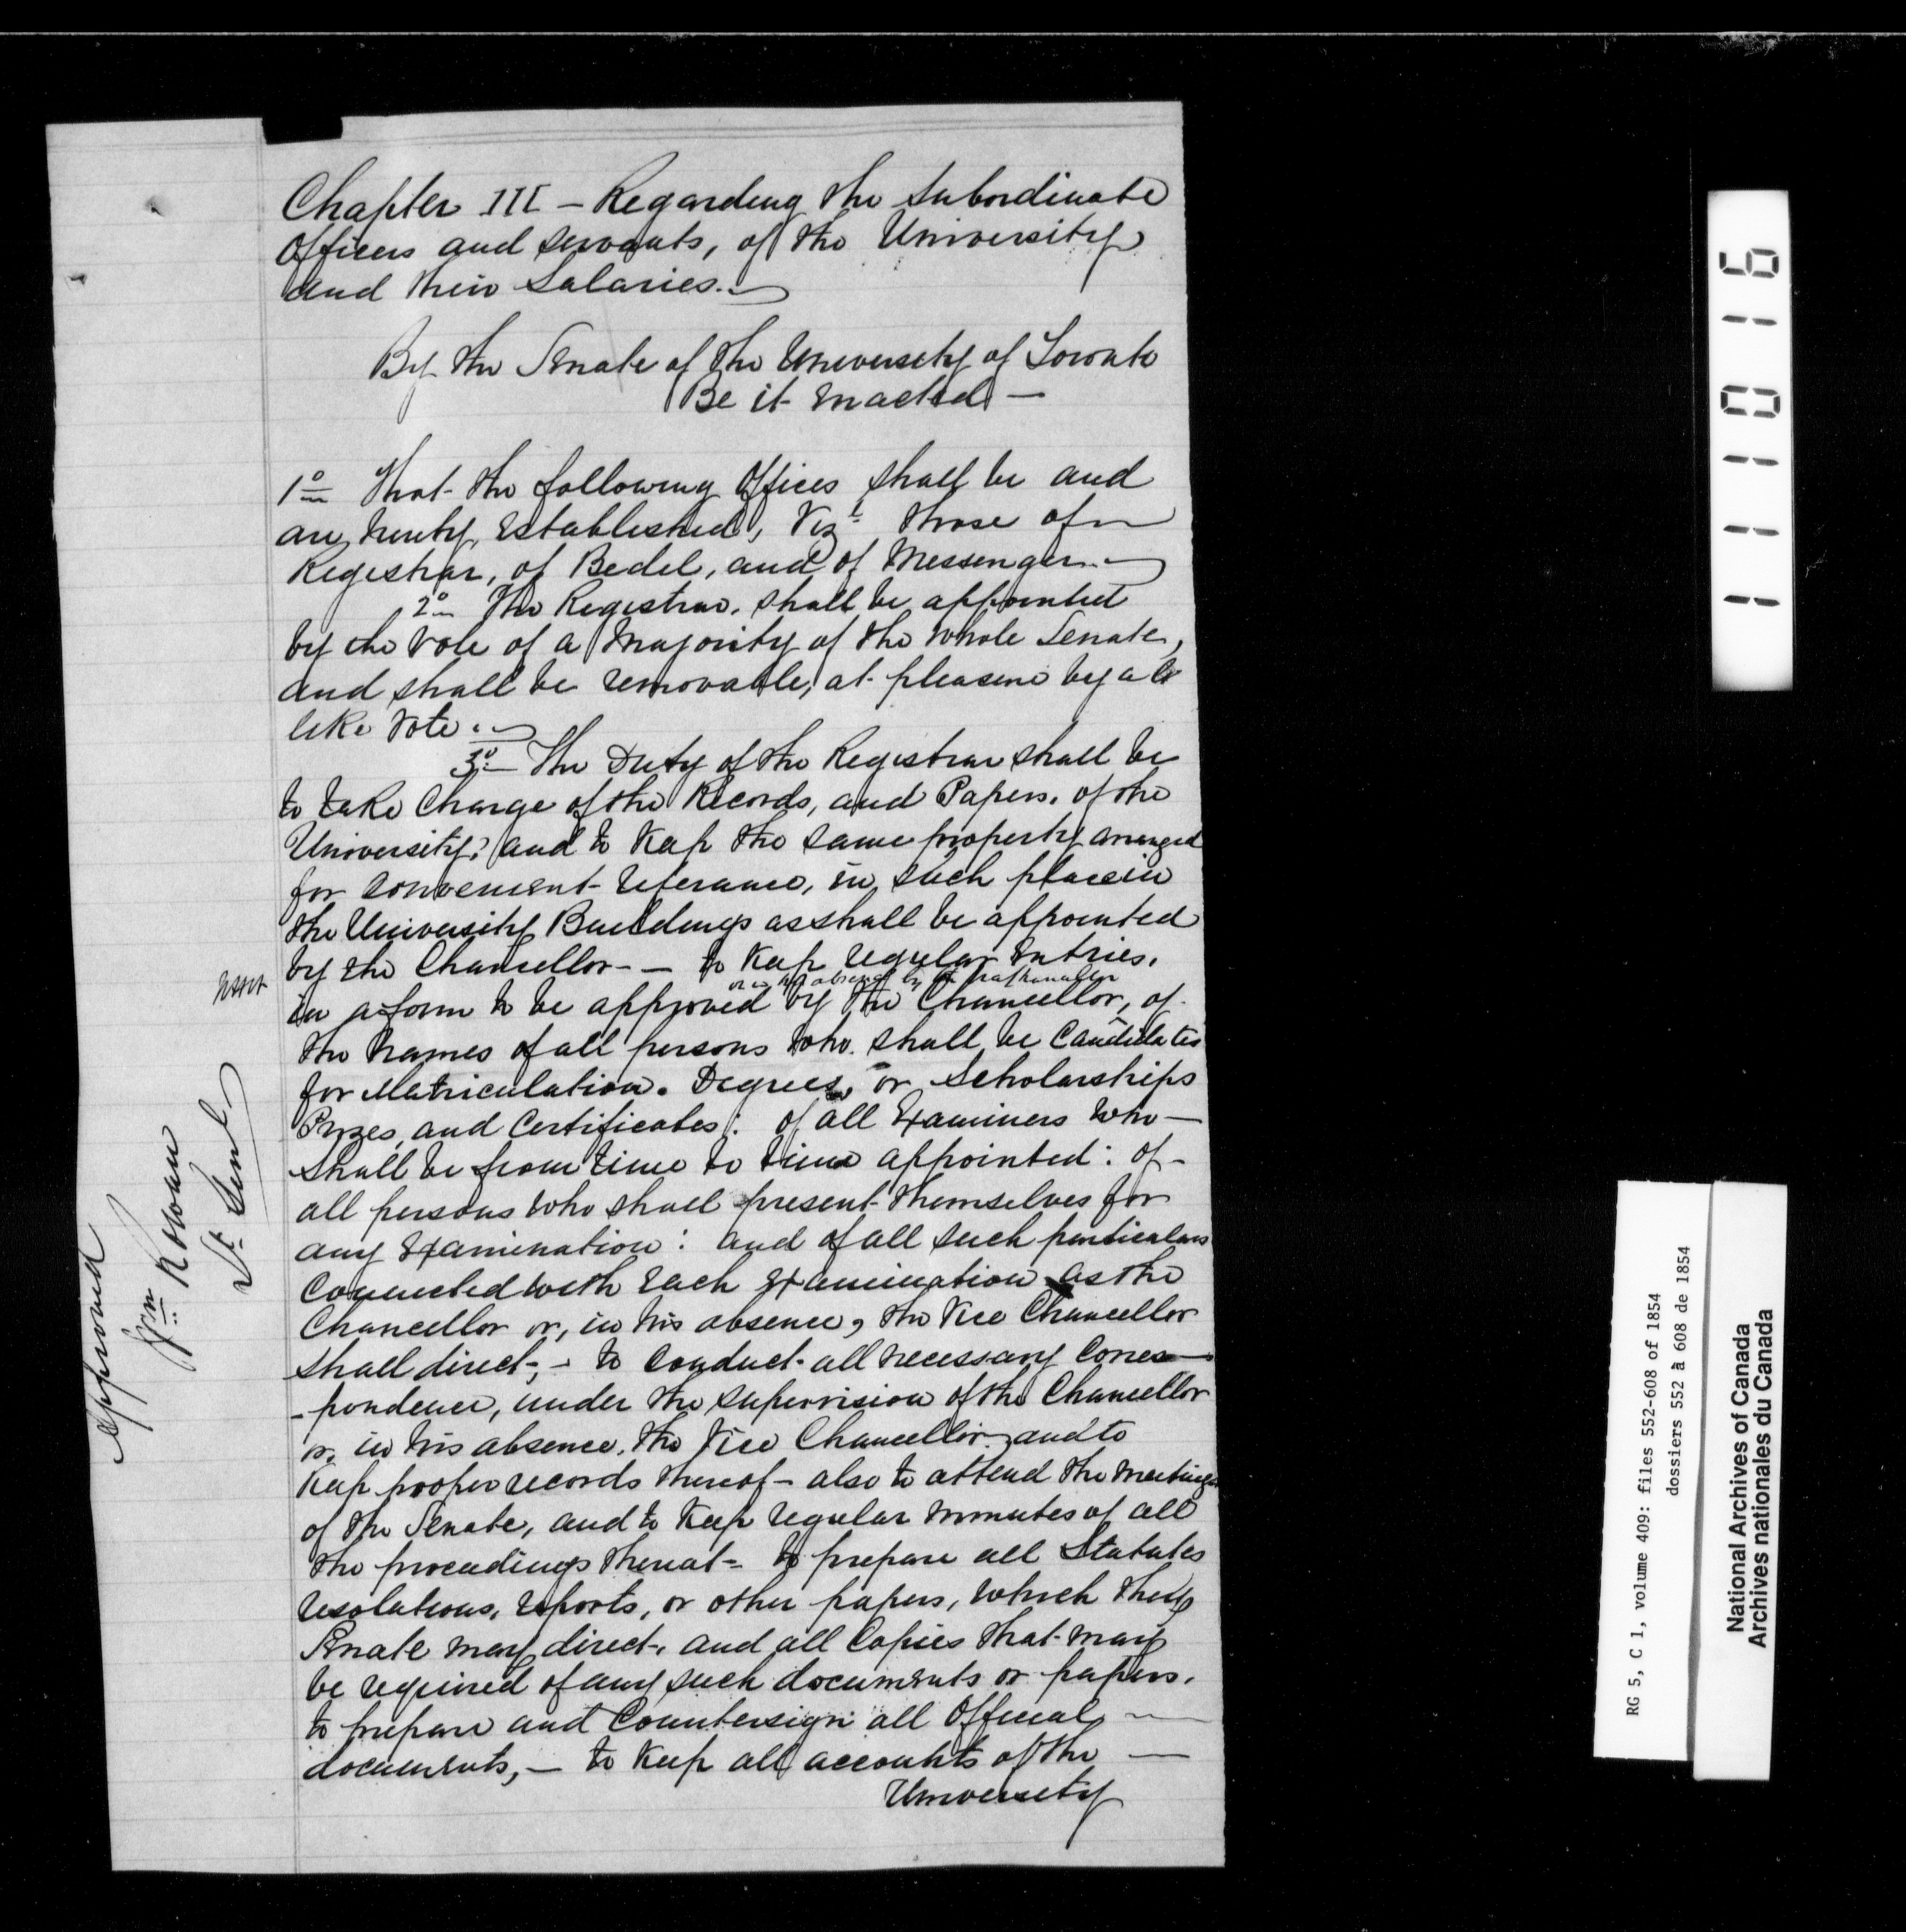 Chapter III – Regarding the Subordinate
Officers and servants, of the University
and their Salaries.
By the Senate of the University of Toronto
Be it enacted –
1º That the following Offices shall be and
are hereby established, Vizt. those of
Registrar, of Bedel, and of Messenger.
2º The Registrar, shall be appointed
by the vote of a Majority of the whole Senate,
and shall be removable, at pleasure by a
like vote.
3º – The Duty of the Registrar shall be
to take Charge of the Records, and Papers, of the
University; and to Keep the same properly arranged
for convenient referance, in such place in
the University Buildings as shall be appointed
by the Chancellor – – to Keep regular entries,
or in his absence by the
in a form to be approved by the Chancellor, of
the names of all persons who shall be Candidates
for Matriculation. Degrees, or Scholarships
Prizes, and Certificates: of all Examiners who –
shall be from time to time appointed: of –
all persons who shall present themselves for
any Examination: and of all such particulars
Connected with each Examination as the
Chancellor or, in his absence, the Vice Chancellor
shall direct, – to Conduct all necessary Corres–
-pondence, under the supervision of the Chancellor
or, in his absence, the Vice Chancellor, and to
Keep proper records thereof – also to attend the meetings
of the Senate, and to Keep regular minutes of all
the proceedings thereat – to prepare all Statutes
resolutions, reports, or other papers, which the
Senate may direct, and all Copies that may
be required of any such documents or papers,
to prepare and Countersign all Official –
documents, – to Keep all accounts of the –
University
approved
Wm Rowan
Lt Genl
111016
RG 5, C 1, volume 409: files 552-608 of 1854
dossiers 552 à 608 de 1854
National Archives of Canada
Archives nationales du Canada